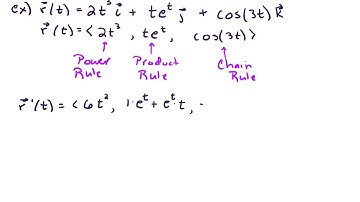 ex) r⃗(t) = 2t³ i⃗ + te^t j⃗ + cos(3t) k⃗
r⃗(t) = < 2t³, te^t, cos(3t) >
Power Rule Product Rule Chain Rule
r⃗'(t) = < 6t², 1·e^t + e^t·t,